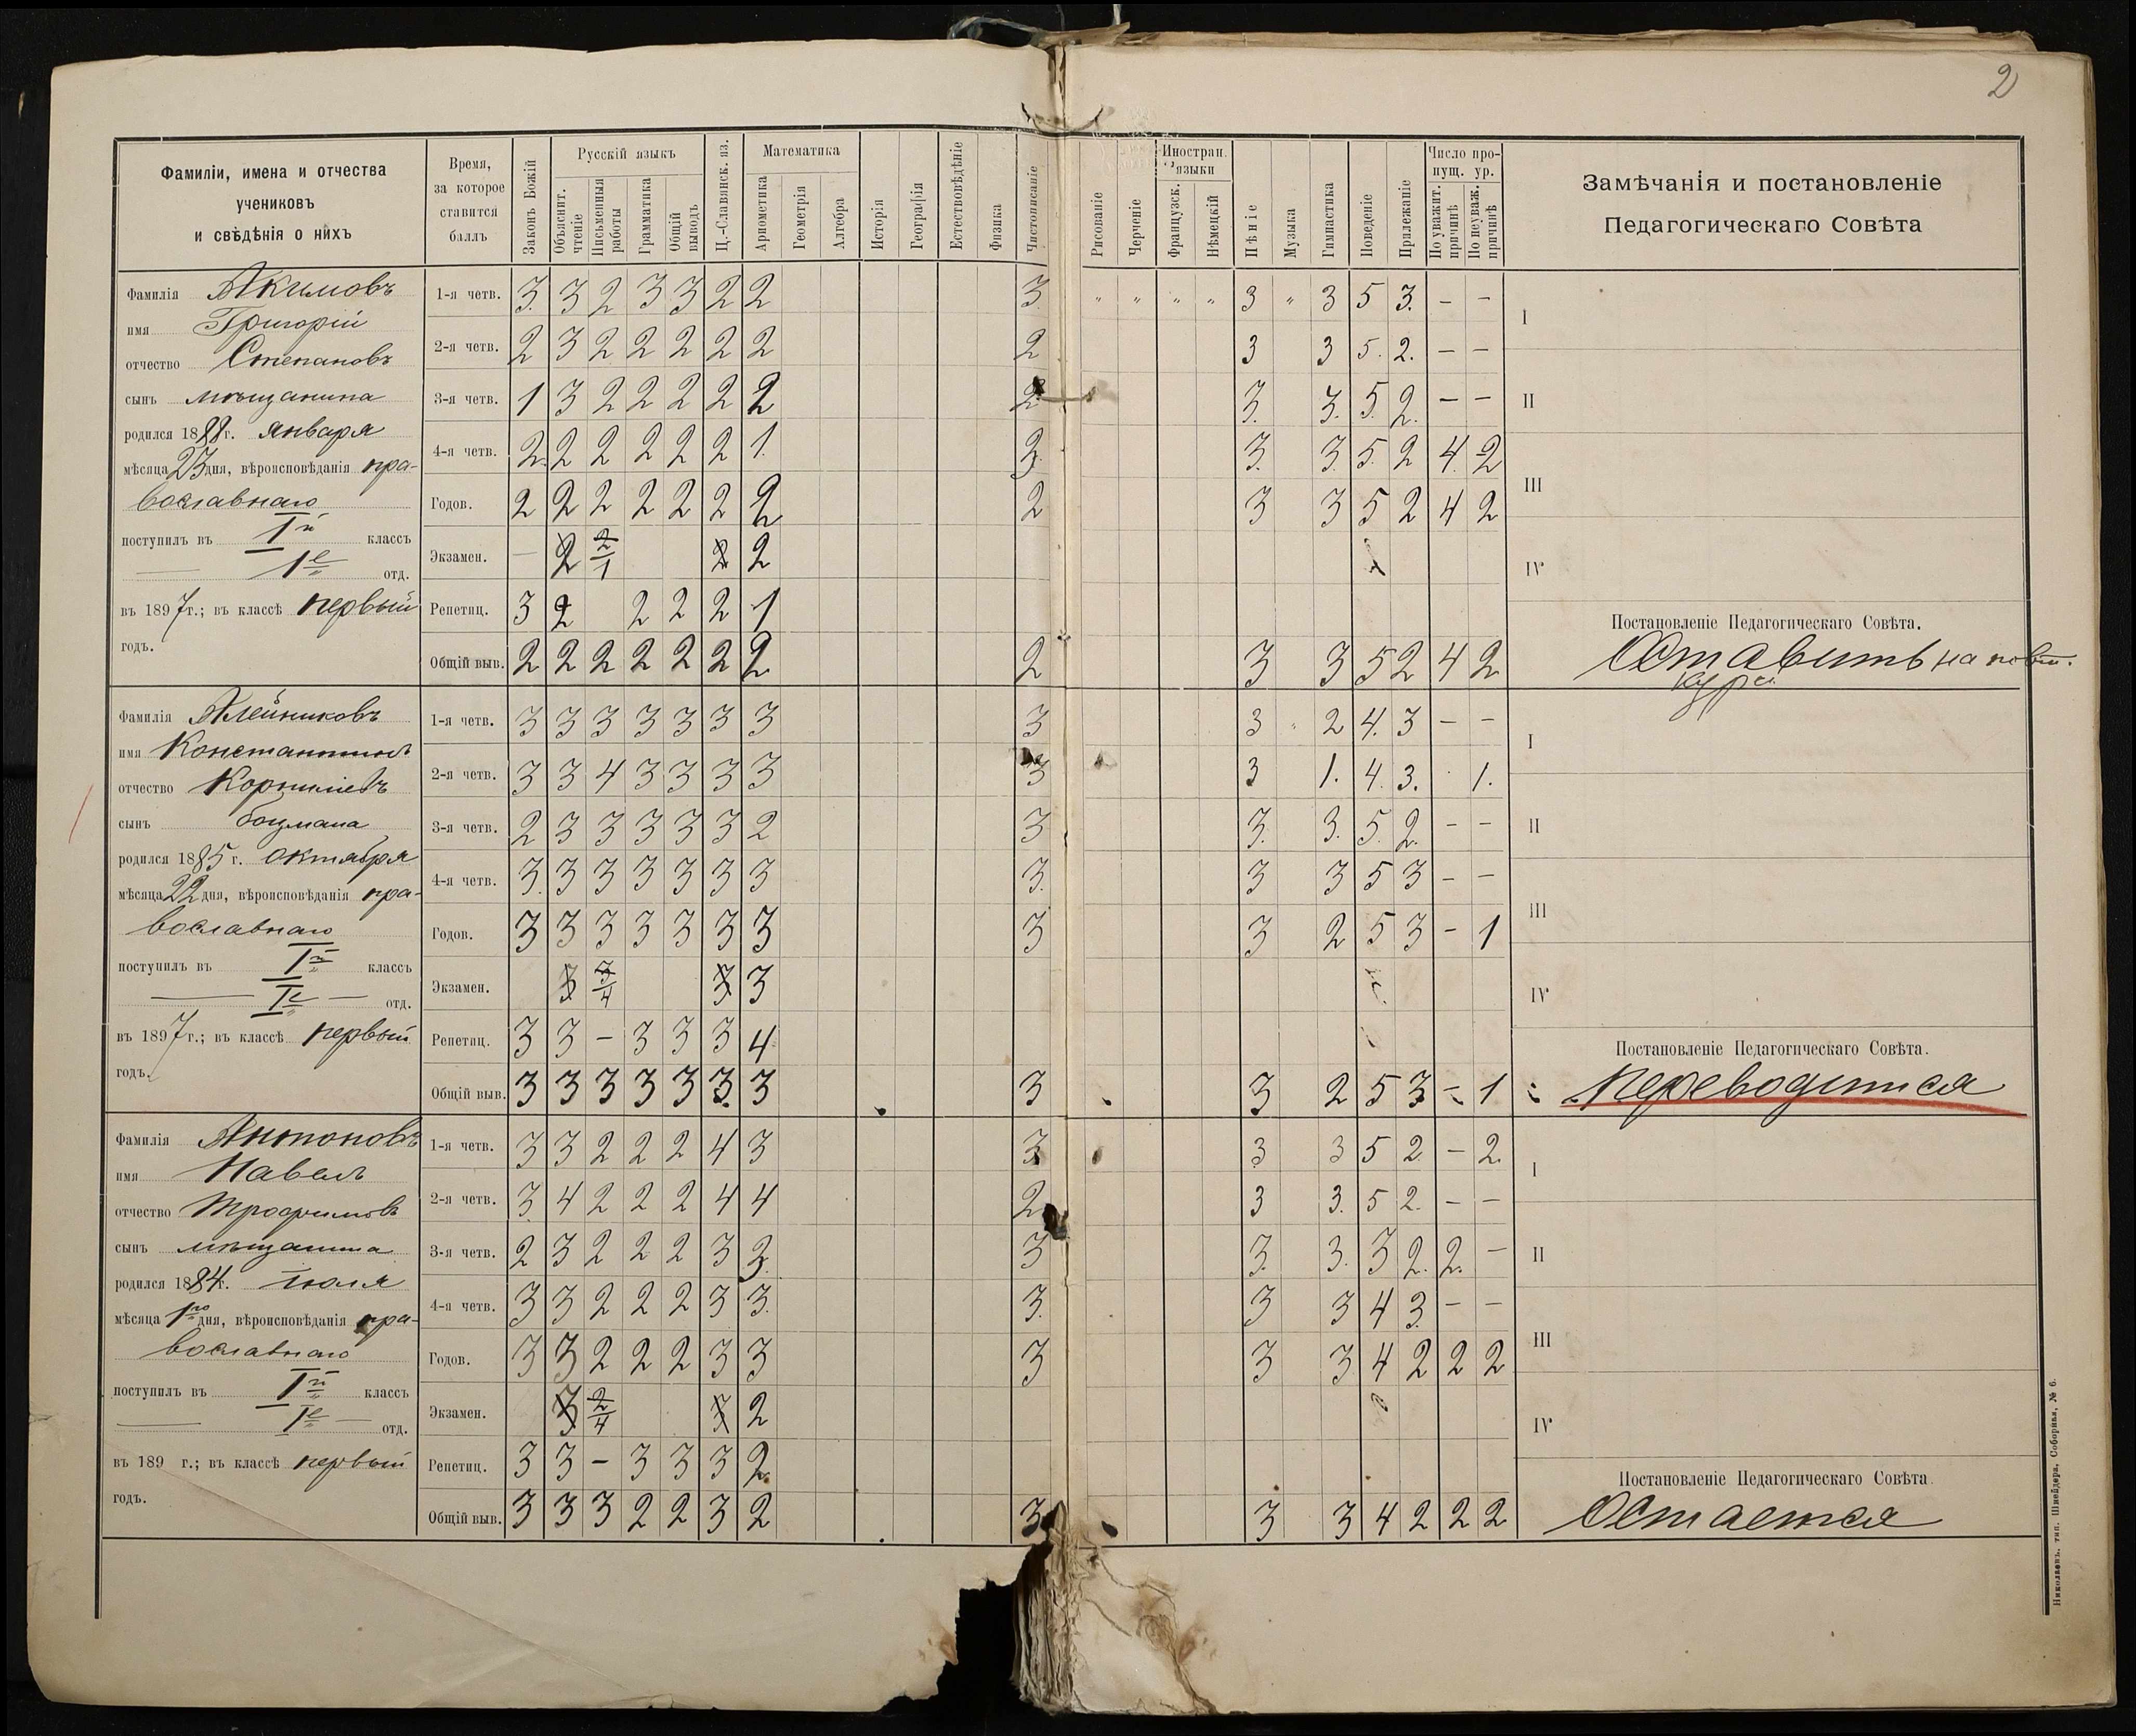 2
Фамиліи, имена и отчества
учениковъ
и свѣдѣнія о нихъ
Время,
за которое
ставится
баллъ
Законъ Божій
Русскій языкъ
Объяснит. чтеніе
Письменныя работы
Грамматика
Общій выводъ
Ц.-Славянск. яз.
Математика
Ариѳметика
Геометрія
Алгебра
Исторія
Географія
Естествовѣдѣніе
Физика
Чистописаніе
Рисованіе
Черченіе
Иностран. языки
Французск.
Нѣмецкій
Пѣніе
Музыка
Гимнастика
Поведеніе
Прилежаніе
Число пропущ. ур.
По уважит. причинѣ
По неуваж. причинѣ
Замѣчанія и постановленіе
Педагогическаго Совѣта
Фамилія Акимовъ
имя Григорій
отчество Степановъ
сынъ мѣщанина
родился 1888 г. января
мѣсяца 23 дня, вѣроисповѣданія пра-
вославнаго
поступилъ въ Iй классъ
1е отд.
въ 1897 г.; въ классѣ первый
годъ.
1-я четв. 3. 3 2 3 3 2 2 3 " " " " 3 " 3 5 3. – –
2-я четв. 2 3 2 2 2 2 2 2 3 3 5. 2. – –
3-я четв. 1 3 2 2 2 2 2 2 3. 3. 5. 2. – –
4-я четв. 2. 2 2 2 2 2 1. 3. 3. 3. 5. 2 4. 2
Годов. 2 2 2 2 2 2 2 2 3 3 5 2 4 2
Экзамен. – 2 2/1 2 2
Репетиц. 3 2 2 2 2 1
Общій выв. 2 2 2 2 2 2 2 2 3 3 5 2 4 2
I
II
III
IV
Постановленіе Педагогическаго Совѣта.
Оставить на повт.
курс
Фамилія Алейниковъ
имя Константинъ
отчество Корниліевъ
сынъ боцмана
родился 1885 г. октября
мѣсяца 22 дня, вѣроисповѣданія пра-
вославнаго
поступилъ въ Iй классъ
Iе отд.
въ 1897 г.; въ классѣ первый
годъ.
1-я четв. 3 3 3 3 3 3 3 3 3 " 2 4. 3 – –
2-я четв. 3 3 4 3 3 3 3 3 3 1. 4. 3. · 1.
3-я четв. 2 3 3 3 3 3 2 3 3. 3. 5. 2. – –
4-я четв. 3. 3 3 3 3 3 3 3. 3 3 5 3 – –
Годов. 3 3 3 3 3 3 3 3 3 2 5 3 – 1
Экзамен. 3 3/4 3 3
Репетиц. 3 3 – 3 3 3 4
Общій выв. 3 3 3 3 3 3. 3 3 3 2 5 3 – 1
I
II
III
IV
Постановленіе Педагогическаго Совѣта.
Переводится
Фамилія Антоновъ
имя Павелъ
отчество Трофимовъ
сынъ мѣщанина
родился 1884 г. іюля
мѣсяца 1го дня, вѣроисповѣданія пра-
вославнаго
поступилъ въ Iй классъ
Iе отд.
въ 189 г.; въ классѣ первый
годъ.
1-я четв. 3 3 2 2 2 4 3 3 3 3 5 2 – 2.
2-я четв. 3. 4 2 2 2 4 4 2 3 3. 5 2. – –
3-я четв. 2 3 2 2 2 3 3. 3 3. 3. 3 2. 2. –
4-я четв. 3 3 2 2 2 3 3. 3. 3 3 4 3. – –
Годов. 3 3 2 2 2 3 3 3 3 3 4 2 2 2
Экзамен. 3 2/4 3 2
Репетиц. 3 3 – 3 3 3 2
Общій выв. 3 3 3 2 2 3 2 3 3 3 4 2 2 2
I
II
III
IV
Постановленіе Педагогическаго Совѣта
Остается
Николаевъ, тип. Шнейдера, Соборная, № 6.